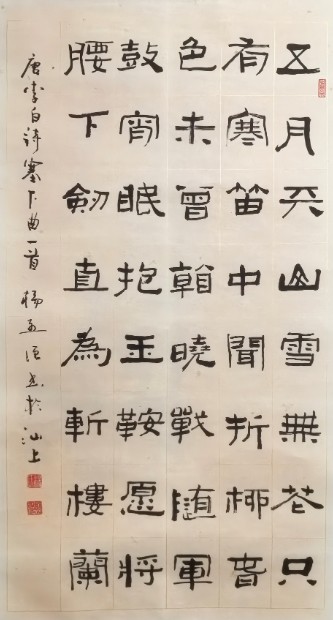 五月天山雪無花只
有寒笛中聞折柳春
色未曾看曉戰随軍
鼓宵眠抱玉鞍愿将
腰下劍直為斬樓蘭
唐李白诗塞下曲一首 杨书於汕上